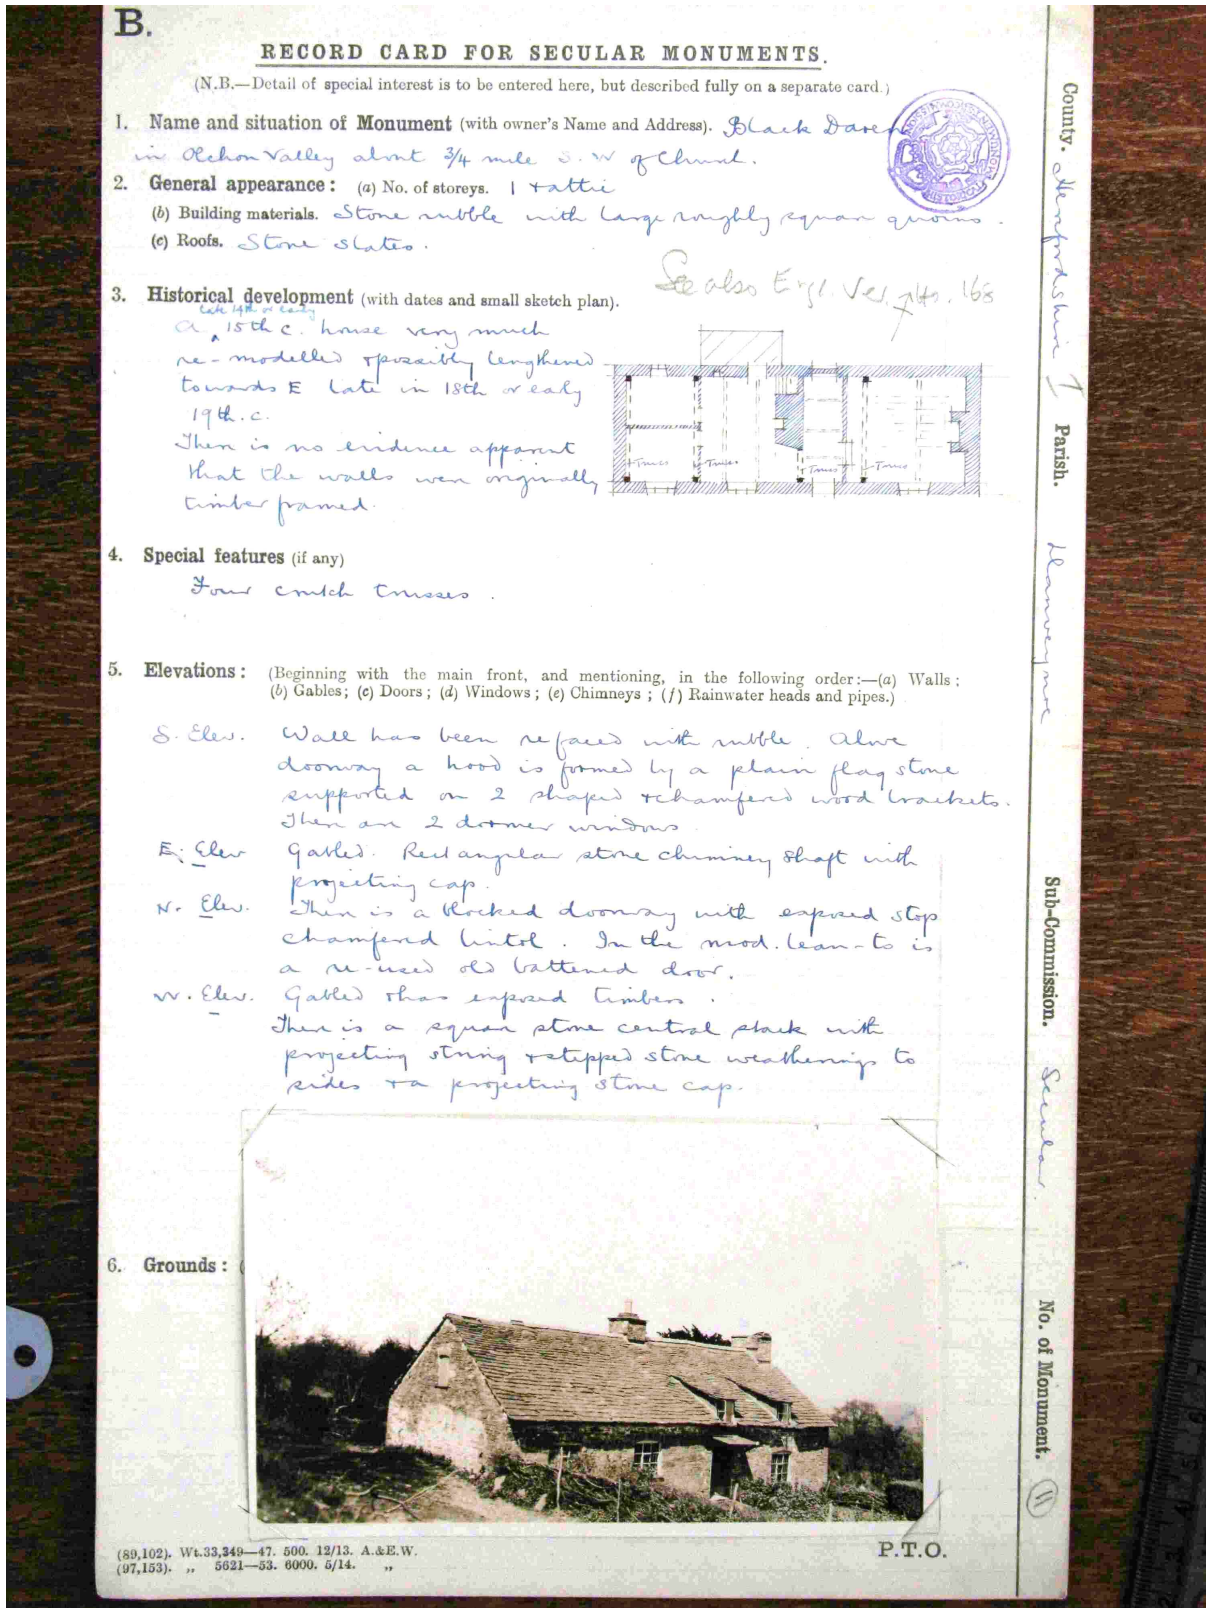 B.
RECORD CARD FOR SECULAR MONUMENTS.
(N.B.—Detail of special interest is to be entered here, but described fully on a separate card.)
1. Name and situation of Monument (with owner's Name and Address). Black Daren
in Olchon Valley about 3/4 mile S. W of Church.
2. General appearance: (a) No. of storeys. 1 + attic
(b) Building materials. Stone rubble with large roughly square quoins.
(c) Roofs. Stone slates.
See also Engl. Ver. 168
3. Historical development (with dates and small sketch plan).
late 14th or early
A 15th c. house very much
re-modelled & possibly lengthened
towards E late in 18th or early
19th. c.
There is no evidence apparent
that the walls were originally
timber framed.
Truss Truss Truss Truss
4. Special features (if any)
Four crutch trusses.
5. Elevations: (Beginning with the main front, and mentioning, in the following order:—(a) Walls;
(b) Gables; (c) Doors; (d) Windows; (e) Chimneys; (f) Rainwater heads and pipes.)
S. Elev. Wall has been refaced with rubble. Above
doorway a hood is formed by a plain flag stone
supported on 2 shaped & chamfered wood brackets.
There are 2 dormer windows
E. Elev Gabled. Rectangular stone chimney shaft with
projecting cap.
N. Elev. There is a blocked doorway with exposed stop
chamfered lintol. In the mod. lean-to is
a re-used old battened door.
W. Elev. Gabled & has exposed timbers.
There is a square stone central stack with
projecting string & stepped stone weatherings to
sides & a projecting stone cap.
6. Grounds: (
(89,102). Wt.33,349—47. 500. 12/13. A.&E.W.
(97,153). „ 5621—53. 6000. 5/14. „
P.T.O.
County. Herefordshire I
Parish. Llanveynoe
Sub-Commission. Secular.
No. of Monument. 11